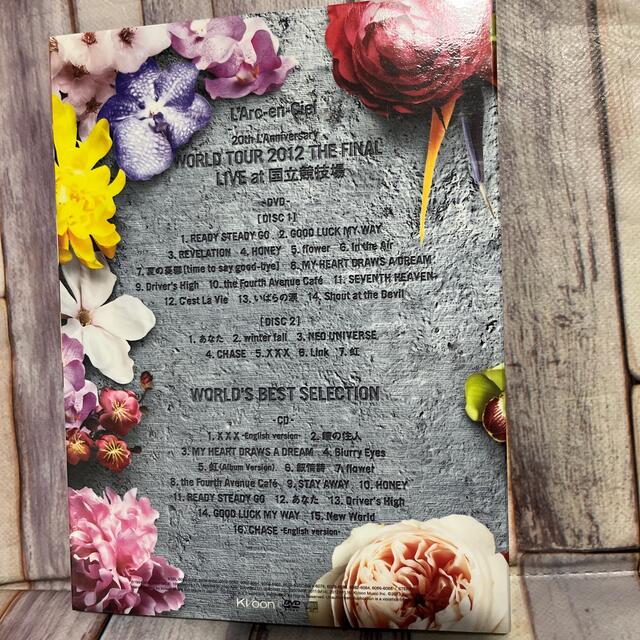 L'Arc-en-Ciel
20th L'Anniversary
WORLD TOUR 2012 THE FINAL
LIVE at 国立競技場
-DVD-
[DISC 1]
1. READY STEADY GO 2. GOOD LUCK MY WAY
3. REVELATION 4. HONEY 5. flower 6. In the Air
7. 夏の憂鬱 [time to say good-bye] 8. MY HEART DRAWS A DREAM
9. Driver's High 10. the Fourth Avenue Café 11. SEVENTH HEAVEN
12. C'est La Vie 13. いばらの涙 14. Shout at the Devil
[DISC 2]
1. あなた 2. winter fall 3. NEO UNIVERSE
4. CHASE 5. X X X 6. Link 7. 虹
WORLD'S BEST SELECTION
-CD-
1. X X X -English version- 2.瞳の住人
3. MY HEART DRAWS A DREAM 4. Blurry Eyes
5. 虹 (Album Version) 6. 叙情詩 7. flower
8. the Fourth Avenue Café 9. STAY AWAY 10. HONEY
11. READY STEADY GO 12. あなた 13. Driver's High
14. GOOD LUCK MY WAY 15. New World
16. CHASE -English version-
Ki/oon DVD